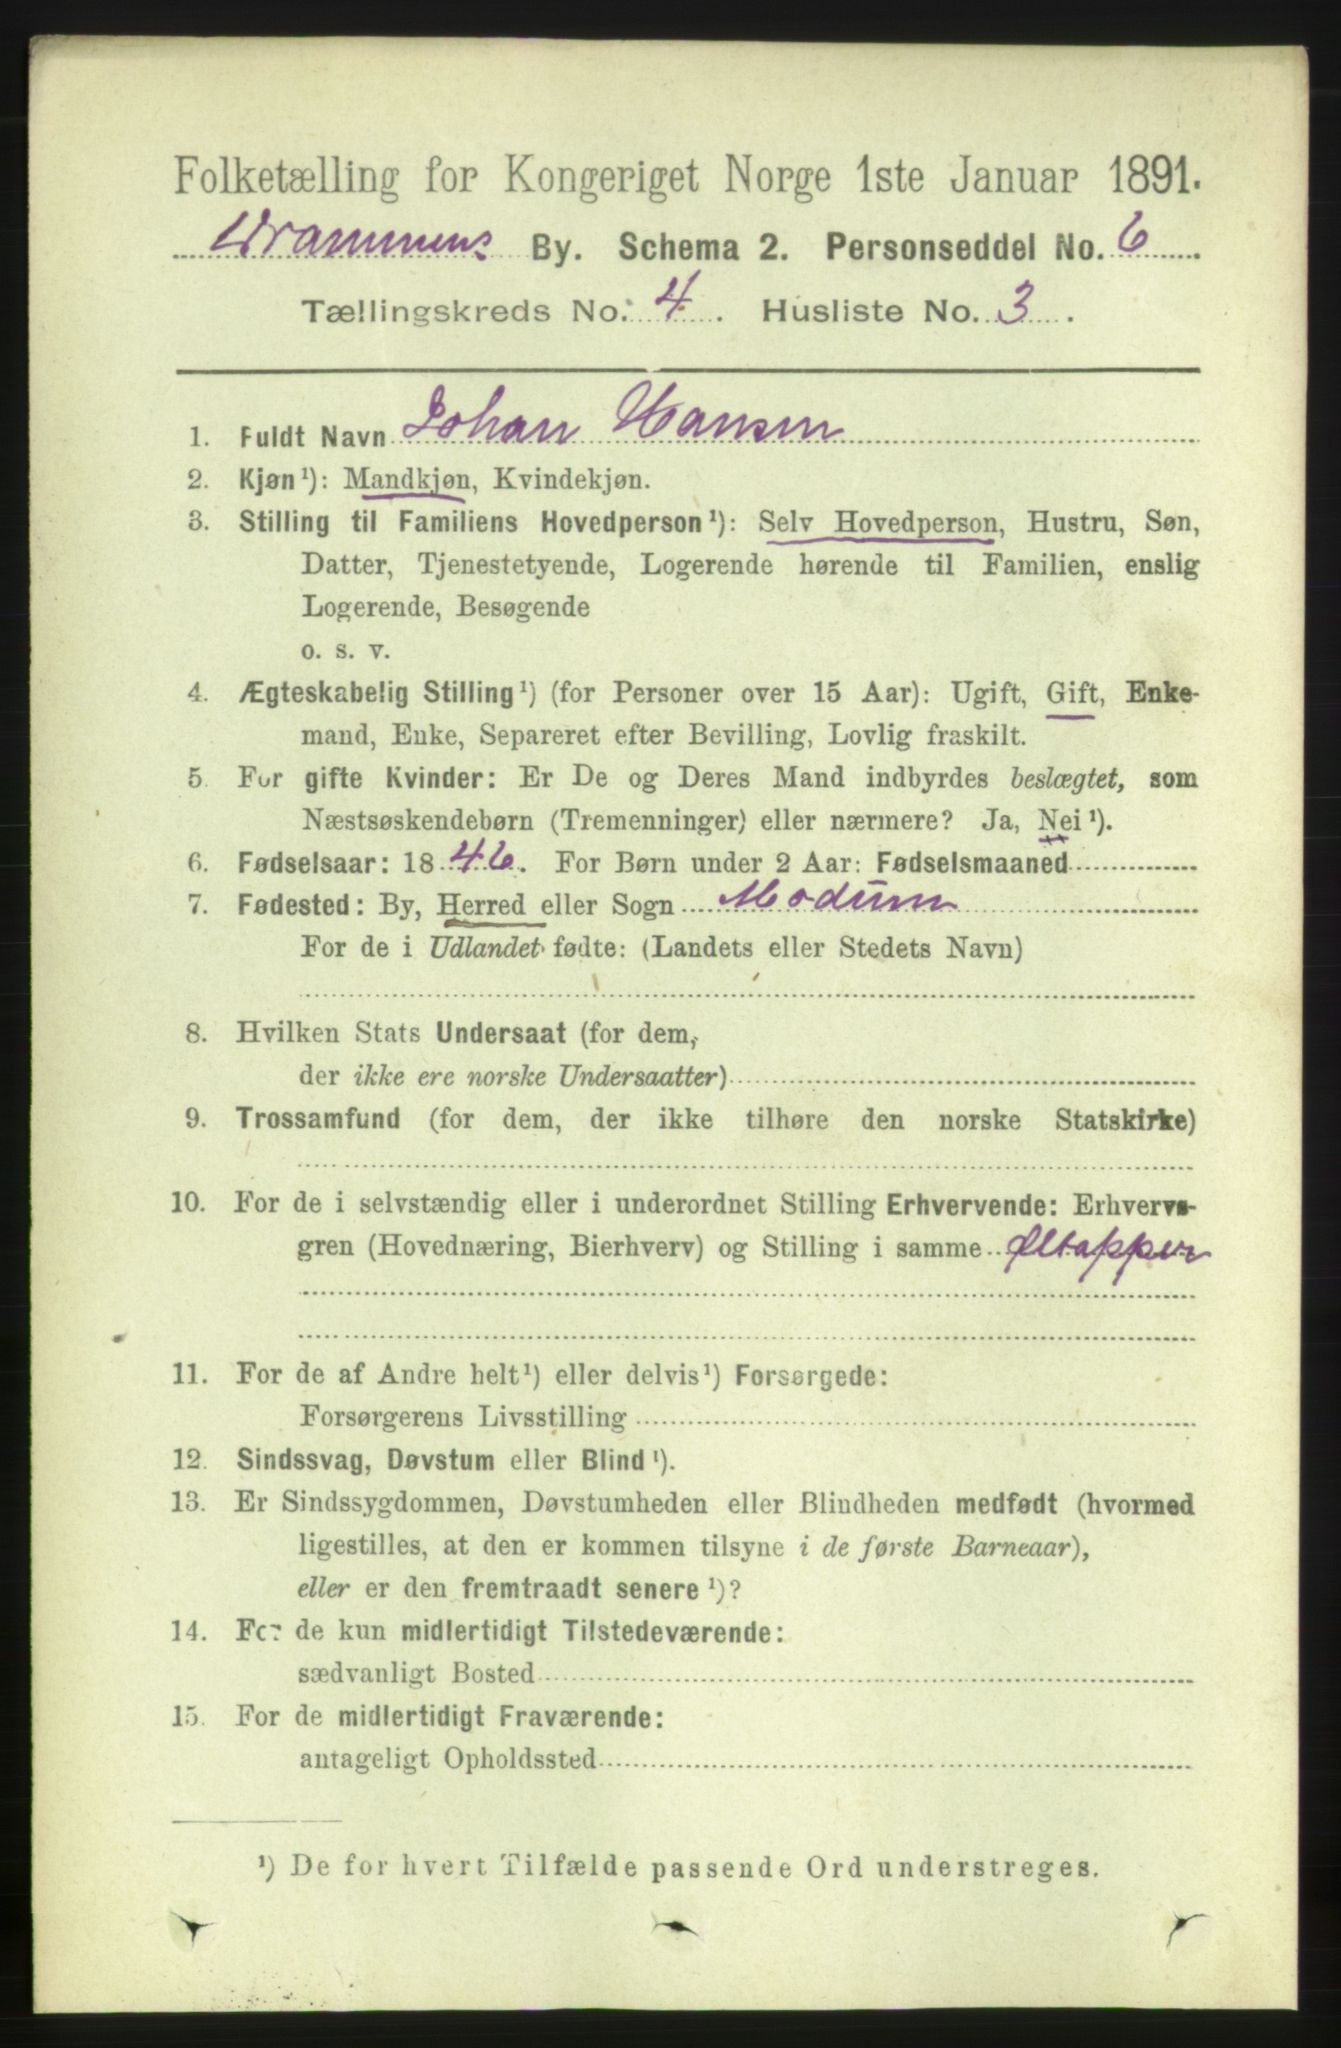 Folketælling for Kongeriget Norge 1ste Januar 1891.
Drammens By. Schema 2. Personseddel No. 6
Tællingskreds No. 4. Husliste No. 3.
1. Fuldt Navn Johan Hansen
2. Kjøn¹): Mandkjøn, Kvindekjøn.
3. Stilling til Familiens Hovedperson¹): Selv Hovedperson, Hustru, Søn,
Datter, Tjenestetyende, Logerende hørende til Familien, enslig
Logerende, Besøgende
o. s. v.
4. Ægteskabelig Stilling¹) (for Personer over 15 Aar): Ugift, Gift, Enke-
mand, Enke, Separeret efter Bevilling, Lovlig fraskilt.
5. For gifte Kvinder: Er De og Deres Mand indbyrdes beslægtet, som
Næstsøskendebørn (Tremenninger) eller nærmere? Ja, Nei¹).
6. Fødselsaar: 1846. For Børn under 2 Aar: Fødselsmaaned
7. Fødested: By, Herred eller Sogn Modum
For de i Udlandet fødte: (Landets eller Stedets Navn)
8. Hvilken Stats Undersaat (for dem,
der ikke ere norske Undersaatter)
9. Trossamfund (for dem, der ikke tilhøre den norske Statskirke)
10. For de i selvstændig eller i underordnet Stilling Erhvervende: Erhvervs-
gren (Hovednæring, Bierhverv) og Stilling i samme Øltapper
11. For de af Andre helt¹) eller delvis¹) Forsørgede:
Forsørgerens Livsstilling
12. Sindssvag, Døvstum eller Blind¹).
13. Er Sindssygdommen, Døvstumheden eller Blindheden medfødt (hvormed
ligestilles, at den er kommen tilsyne i de første Barneaar),
eller er den fremtraadt senere¹)?
14. For de kun midlertidigt Tilstedeværende:
sædvanligt Bosted
15. For de midlertidigt Fraværende:
antageligt Opholdssted
¹) De for hvert Tilfælde passende Ord understreges.